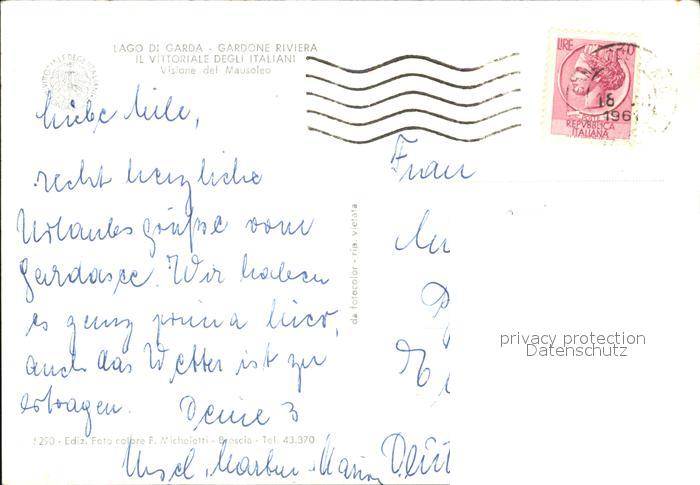 LAGO DI GARDA - GARDONE RIVIERA
IL VITTORIALE DEGLI ITALIANI
Visione del Mausoleo
VITTORIALE DEGLI ITALIANI
LIRE
18
196
POSTE
REPVBBLICA
ITALIANA
Liebe
recht herzliche
Urlaubsgrüße vom
Gardasee. Wir haben
es ganz prima hier,
auch das Wetter ist zu
ertragen. Deine 3
da fotocolor - rip. vietata
Frau
privacy protection
Datenschutz
290 - Ediz. Foto colore F. Micheletti - Brescia - Tel. 43.370